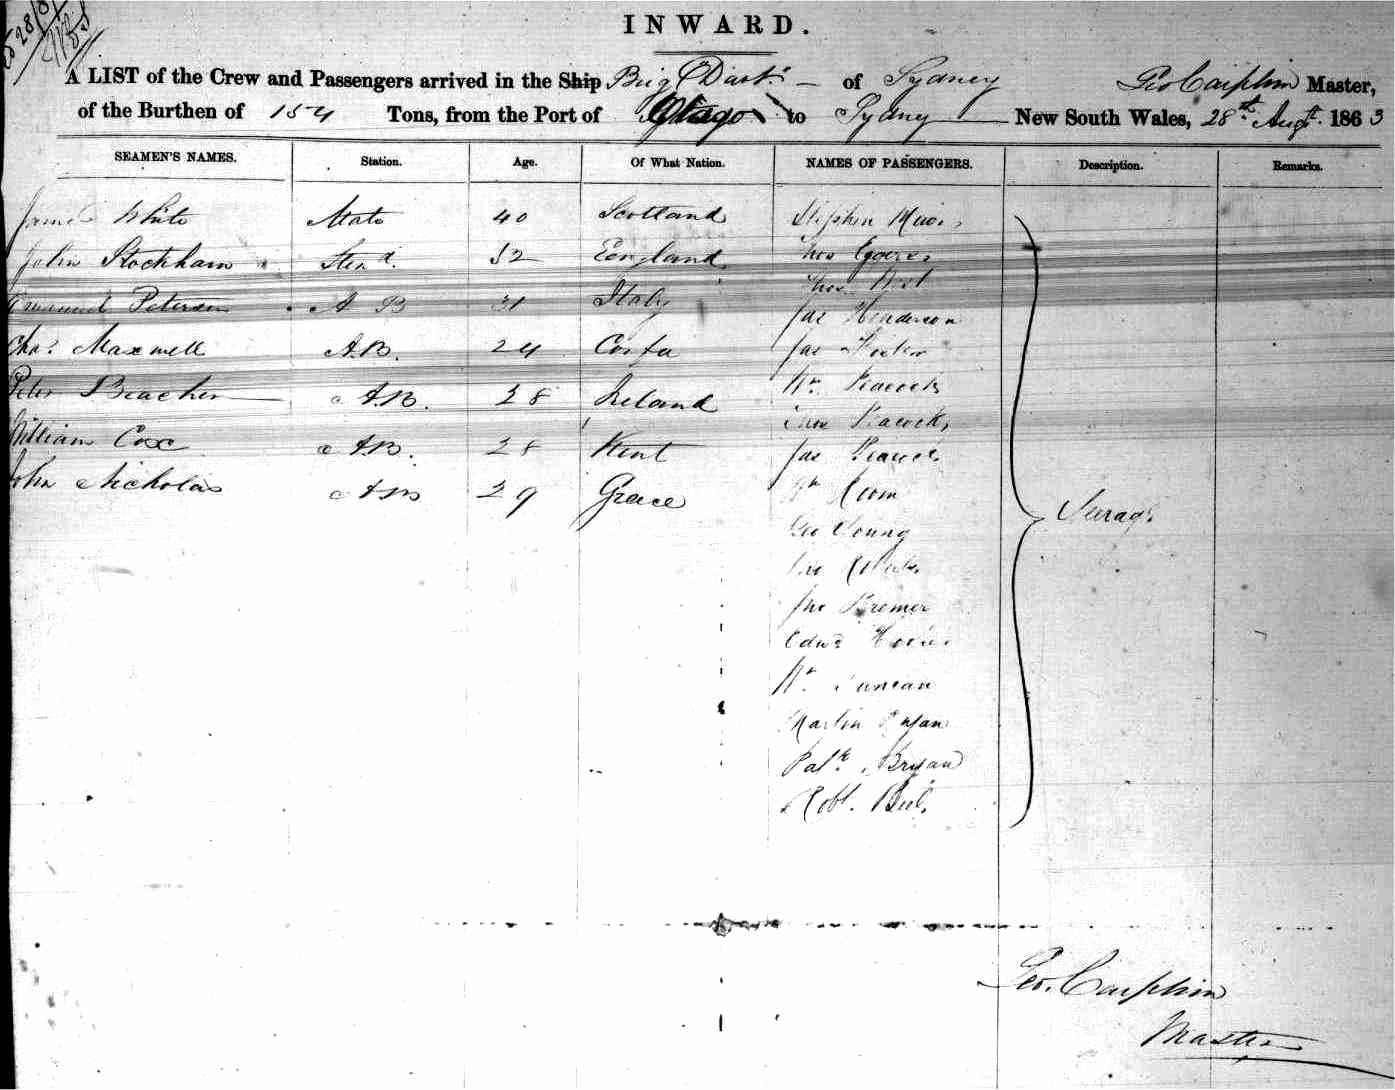 INWARD.
A LIST of the Crew and Passengers arrived in the Ship Brig "Dart" of Sydney Geo Caiphin Master,
of the Burthen of 154 Tons, from the Port of Otago to Sydney New South Wales, 28th Augt. 1863
SEAMEN'S NAMES. Station. Age. Of What Nation. NAMES OF PASSENGERS. Description. Remarks.
James White Mate 40 Scotland Stephen Muir
John Stockham Stewd. 52 England Thos
Emanuel Petersen A B 31 Italy Thos
Jas Henderson
Chas. Maxwell A.B. 24 Corfu Jas
Peter Beacher A.B. 28 Ireland Wm Peacock
Peacock
William Coxe A.B. 28 Kent Jas
John Nicholas A B 29 Greece Wm Room
Steerage
Geo Young
Jno Roberts
Jno Bremer
Edwd
Wm Duncan
Martin Ryan
Patk. Bryan
Robt. Bell
Geo. Caiphin
Master